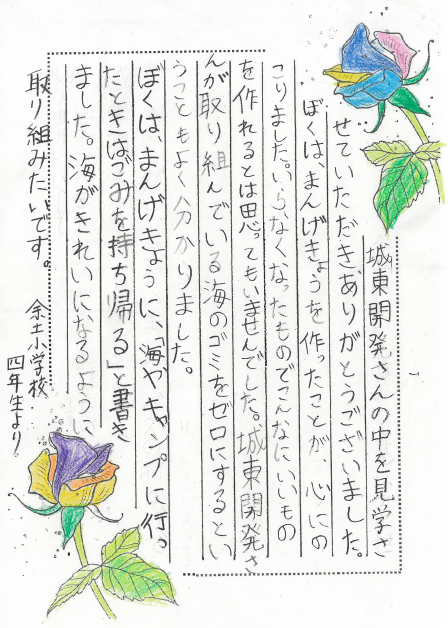 城東開発さんの中を見学さ
せていただき、ありがとうございました。
ぼくは、まんげきょうを作ったことが心にの
こりました。いらなくなったものでこんなにいいもの
を作れるとは思ってもいませんでした。城東開発さ
んが取り組んでいる海のゴミをゼロにするとい
うこともよく分かりました。
ぼくは、まんげきょうに、「海やキャンプに行っ
たときはごみを持ち帰る」と書き
ました。海がきれいになるように
取り組みたいです。
余土小学校
四年生より